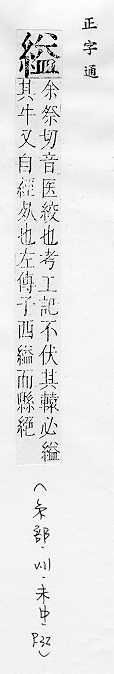 正字通
縊
余祭切音医絞也考工記不伏其轅必縊
其牛又自經死也左傳子西縊而縣絕
(糸部·未中·P32)